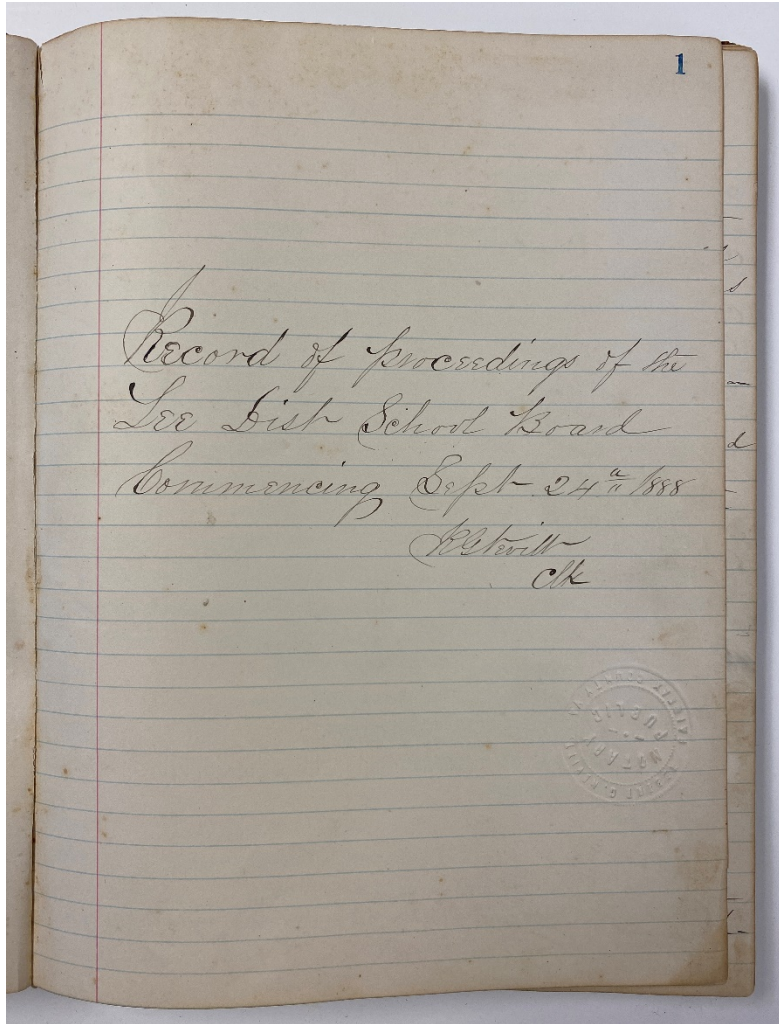 1
Record of proceedings of the
Lee Dist School Board
Commencing Sept 24th 1888
Clk
NOTARY
PUBLIC